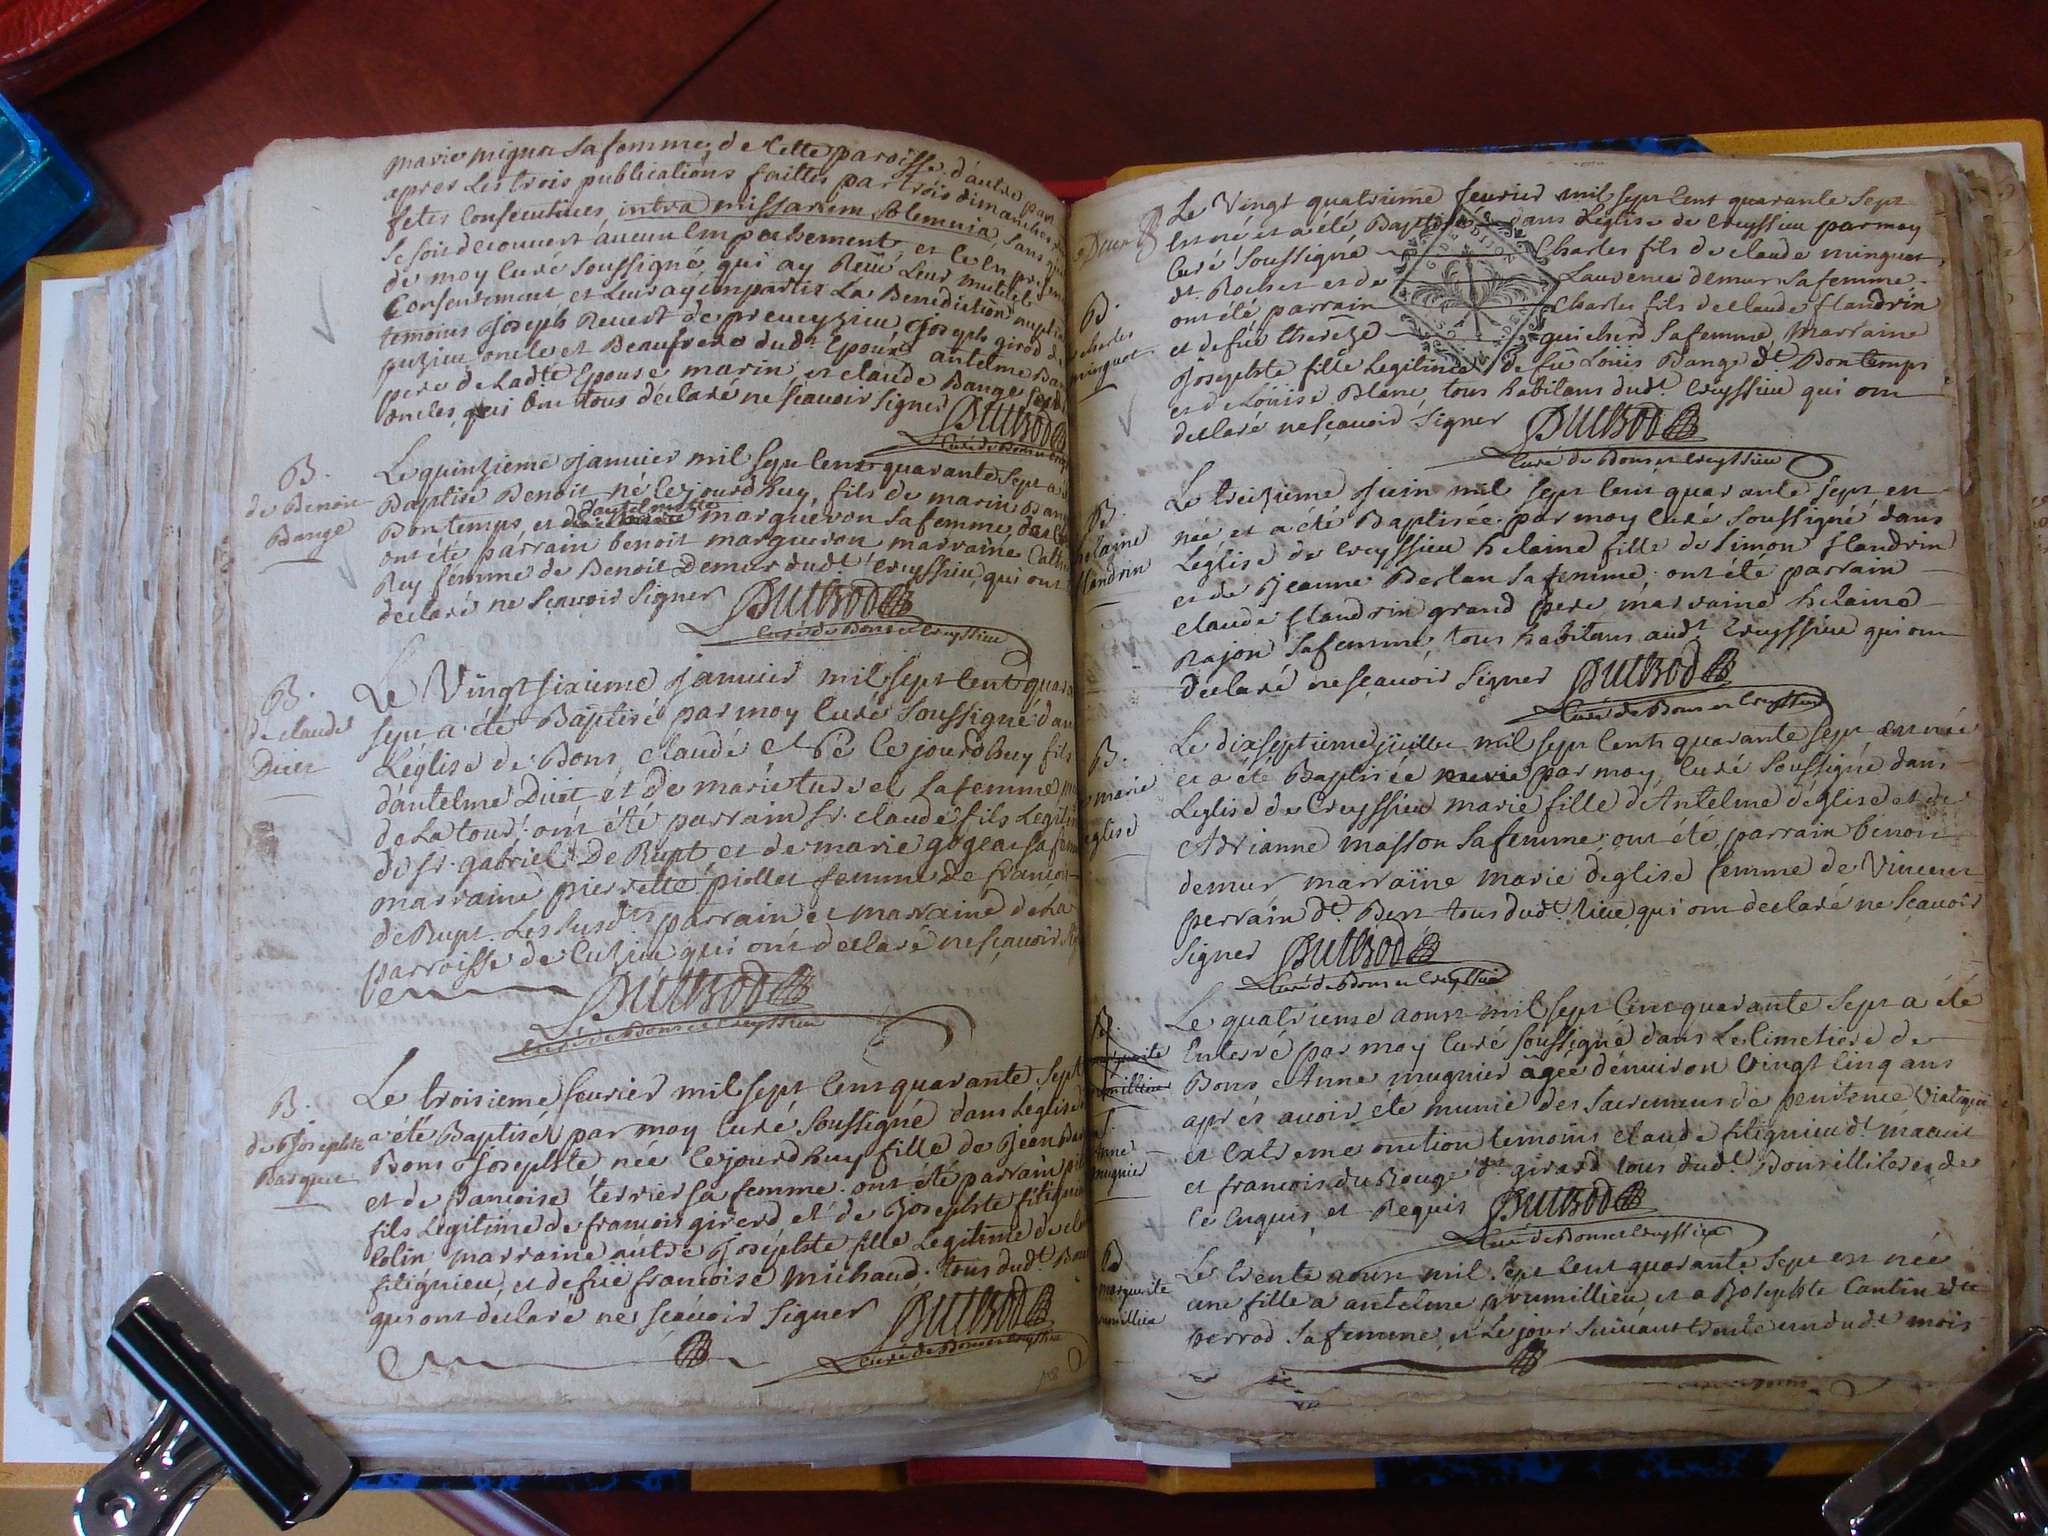 marie mignot sa femme, de cette paroisse d'autre part
apres Les trois publications faittes par trois dimanches
fetes Consecutives, intra missarum solemnia, sans que
se soit decouvert aucun empeschement, et le en presence
de moy Curé soussigné qui ay Reçu Leur mutuel
Consentement et Leur ay impartis La Benediction nuptiale
temoins Joseph Revert de preveyzieu, Joseph girod de
oncle et Beaufrere dudt Epoux antelme Bange
pere de Ladte Epouse marin et claude Bange
oncles, qui ont tous déclaré ne sçavoir signer
Dutrod
Curé de Bons et Creyssieu
B.
de Benoit
Bange
Le quinzieme Janvier mil sept cent quarante sept a été
Baptisé Benoit né Le jourd'huy, fils de marin Bange
Bontemps, et d'antelmette margueron sa femme,
ont été parrain benoit margueron marraine
Rey femme de Benoit Demur dudt Creyssieu, qui ont
declaré ne sçavoir signer
Dutrod
Curé de Bons et Creyssieu
B.
de claude
Duet
Le Vingt sixieme Janvier mil sept cent quarante
sept a été Baptisé par moy Curé soussigné dans
L'église de Bons, claude et né le jourdhuy fils
d'antelme Duet et de marie tuvel sa femme
de La tour. ont été parrain sr. claude fils Legitime
de sr. gabriel De Rupt et de marie gogeat sa femme
marraine pierrette piollet femme de francois
de Rupt. Les susdts parrain et marraine de La
parroisse de Cuzieu qui ont declaré ne sçavoir
Dutrod
Curé de Bons et Creyssieu
B.
de Josephte
Barquet
Le troisieme fevrier mil sept cent quarante sept
a été Baptisée par moy Curé soussigné dans L'église de
Bons Josephte née Le jourdhuy fille de Jean
et de francoise terrier sa femme. ont été parrain
fils Legitime de francois girerd et de Josephte filignieu
Colin marraine autre Josephte fille Legitime de
filignieu, et de feüe francoise michaud. tous dudt Bons
qui ont declaré ne sçavoir signer
Dutrod
Curé de Bons et Creyssieu
B.
charles
minguet
Le Vingt quatrieme fevrier mil sept cent quarante sept
est né et a été Baptisé dans L'église de Creyssieu par moy
Curé soussigné Charles fils de claude minguet
dt. Rochet et de Laurence demur sa femme.
ont été parrain Charles fils de claude flandrin
et de feüe thereze guicherd sa femme, marraine
Josephte fille Legitime de feu Louis Bange dt. Bontemps
et de Loüise Blanc, tous habitans dudt. Creyssieu qui ont
declaré ne sçavoir signer
Dutrod
Curé de Bons et Creyssieu
B.
helaine
flandrin
Le treizieme Juin mil sept cent quarante sept est
née et a été Baptisée par moy Curé soussigné dans
L'église de Creyssieu helaine fille de simon flandrin
et de Jeanne Berlan sa femme. ont été parrain
claude flandrin grand pere, marraine helaine
Rajon sa femme, tous habitans dudt. Creyssieu qui ont
declaré ne sçavoir signer
Dutrod
Curé de Bons et Creyssieu
B.
marie
eglise
Le dix septieme Juillet mil sept cent quarante sept est née
et a été Baptisée par moy Curé soussigné dans
L'eglise de Creyssieu marie fille d'Antelme d'église et de
Adrianne masson sa femme. ont été parrain benoit
demur marraine marie d'eglise femme de Vincent
perrain dt. Ben tous dudt. lieu, qui ont declaré ne sçavoir
signer
Dutrod
Curé de Bons et Creyssieu
S.
Anne
mugnier
Le quatrieme aoust mil sept cent quarante sept a été
Enterré par moy Curé soussigné dans Le Cimetiere de
Bons Anne mugnier agée d'environ Vingt cinq ans
après avoir eté munie des sacremens de penitence Viatique
et extreme onction temoins claude filignieu dt.
et francois du Rouge dt girard tous dudt. Bons illiterés de
ce enquis et Requis
Dutrod
Curé de Bons et Creyssieu
B
marguerite
prumillieu
Le trente aoust mil sept cent quarante sept est née
une fille a antelme prumillieu, et a Josephte Cantin dte
perrod sa femme, et Le jour suivant trente un dudt mois